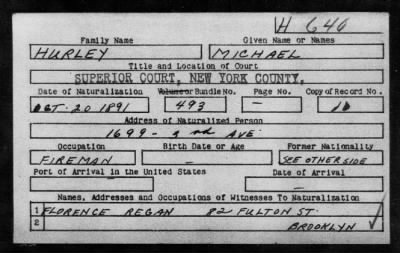 H 640
Family Name Given Name or Names
HURLEY MICHAEL
Title and Location of Court
SUPERIOR COURT, NEW YORK COUNTY.
Date of Naturalization Volume or Bundle No. Page No. Copy of Record No.
OCT. 20 1891 493 —
Address of Naturalized Person
1699 - 3rd AVE.
Occupation Birth Date or Age Former Nationality
FIREMAN — SEE OTHER SIDE
Port of Arrival in the United States Date of Arrival
—
Names, Addresses and Occupations of Witnesses To Naturalization
1 FLORENCE REGAN 82 FULTON ST.
2 BROOKLYN